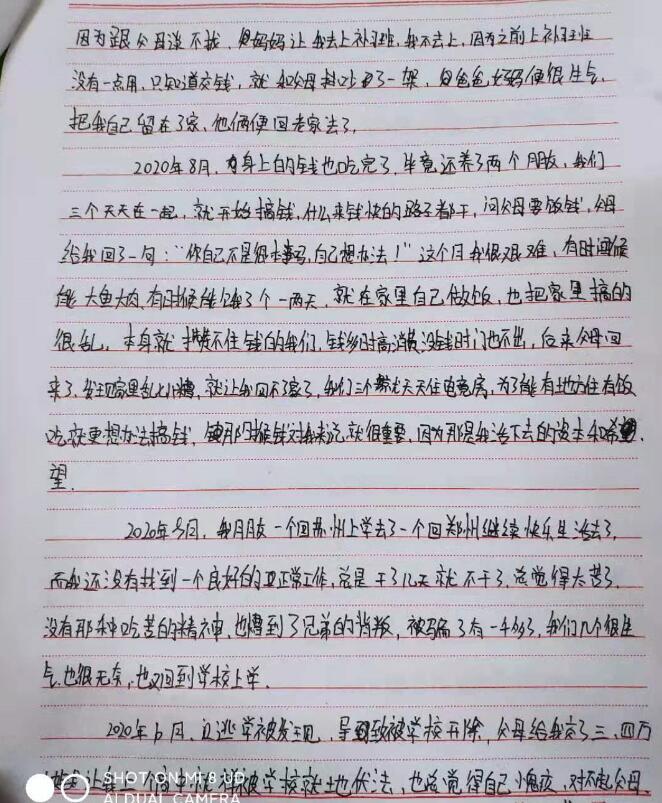 因为跟父母谈不拢,但妈妈让我去上补习班,我不去上,因为之前上补习班
没有一点用,只知道交钱,就和父母吵了一架,但爸爸妈妈便很生气,
把我自己留在了家,他俩便回老家去了。
2020年8月,身上的钱也吃完了,毕竟还养了两个朋友,我们
三个天天在一起,就开始搞钱,什么来钱快的路子都干,问父母要饭钱,父母
给我回了一句:“你自己不是很本事吗,自己想办法!”这个月我很艰难,有时候
能大鱼大肉,有时候能饿个一两天,就在家里自己做饭,也把家里搞的
很乱,本身就攒不住钱的我们,钱多时高消费,没钱时门也不出,后来父母回
来了,发现家里乱七八糟,就让我回不了家了,我们三个就天天住电竞房,为了能有地方住有饭
吃就更想办法搞钱,那时候钱对我来说就很重要,因为那是我活下去的资本和希
望。
2020年9月,我朋友一个回苏州上学去了一个回郑州继续快乐生活去了,
而我还没有找到一个良好的正常工作,总是干了几天就不干了,总觉得太苦了,
没有那种吃苦的精神,也遭到了兄弟的背叛,被骗了有一千多了,我们几个很生
气,也很无奈,也又回到学校上学。
2020年 月,逃学被发现,导致被学校开除,父母给我交了三、四万
让我上 被学校就地伏法,也总觉得自己 对不起父母,
SHOT ON MI 8 UD
AI DUAL CAMERA